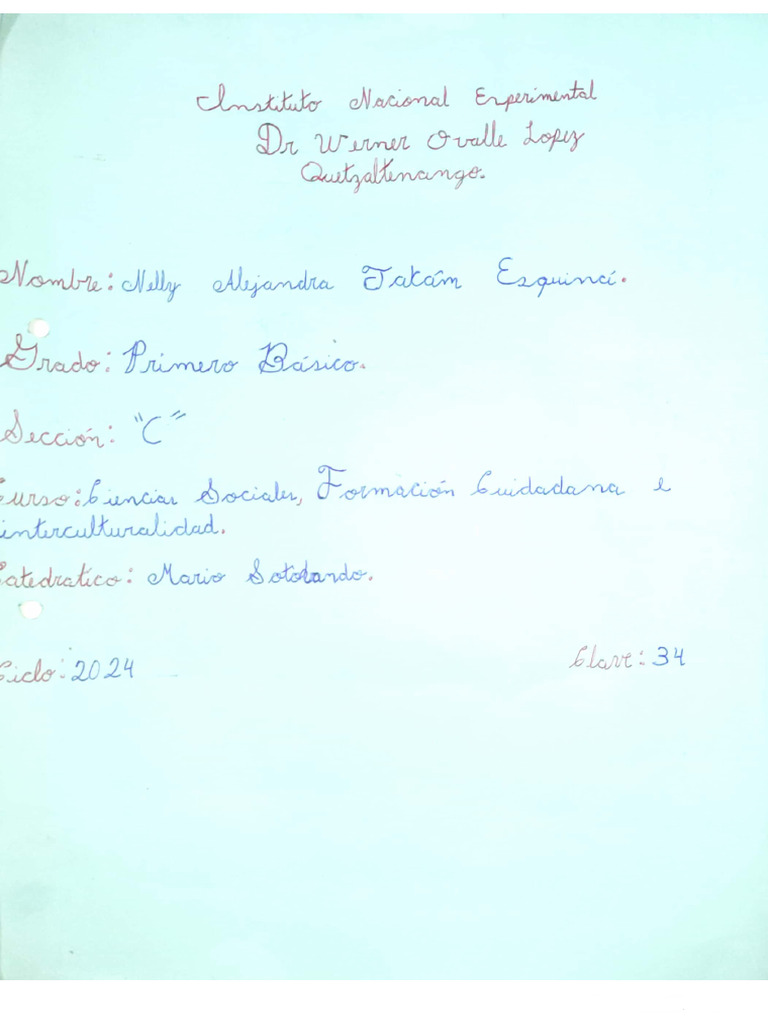 Instituto Nacional Experimental
Dr Werner Ovalle Lopez
Quetzaltenango.
Nombre: Nelly Alejandra Takám Esquincí.
Grado: Primero Básico.
Sección: "C"
Curso: Ciencias Sociales, Formación Cuidadana e
interculturalidad.
Catedratico: Mario
Ciclo: 2024
Clave: 34